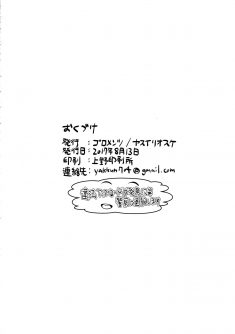 おくづけ
発行 : ゴロメンツ/ナスイリオスケ
発行日 : 2017年8月13日
印刷 : 上野印刷所
連絡先 : yakkun74@gmail.com